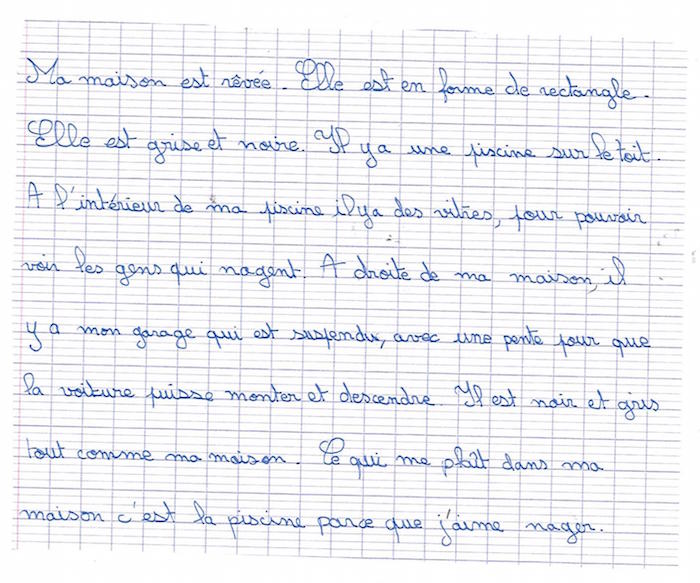 Ma maison est rêvée. Elle est en forme de rectangle.
Elle est grise et noire. Il y a une piscine sur le toit.
A l'intérieur de ma piscine il y a des vitres, pour pouvoir
voir les gens qui nagent. A droite de ma maison, il
y a mon garage qui est suspendu, avec une pente pour que
la voiture puisse monter et descendre. Il est noir et gris
tout comme ma maison. Ce qui me plaît dans ma
maison c'est la piscine parce que j'aime nager.